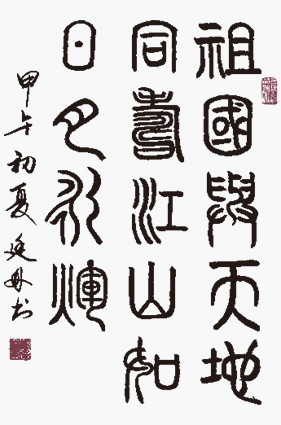 祖國與天地
同壽江山如
日月永煇
甲午初夏廷书